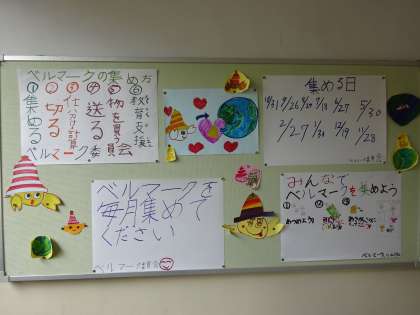 ベルマークの集め方
①集める
②切る
③仕分け計算
④送る
⑤物を買う
⑥教育支援
ベルマーク委員会
集める日
5/30
2/27 1/30 12/19 11/28
ベルマークを
毎月集めて
ください
ベルマーク委員会
みんなで
ベルマークを集めよう